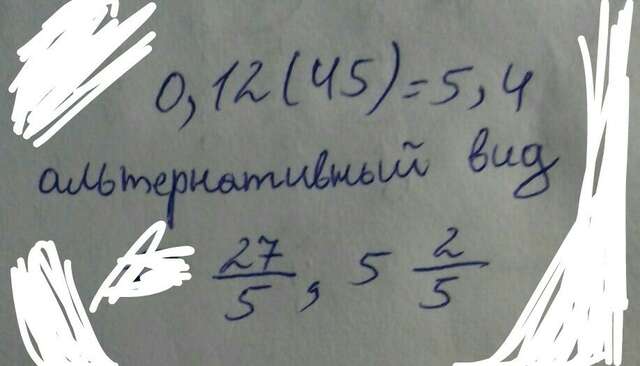 0,12(45)=5,4
альтернативный вид
27/5, 5 2/5